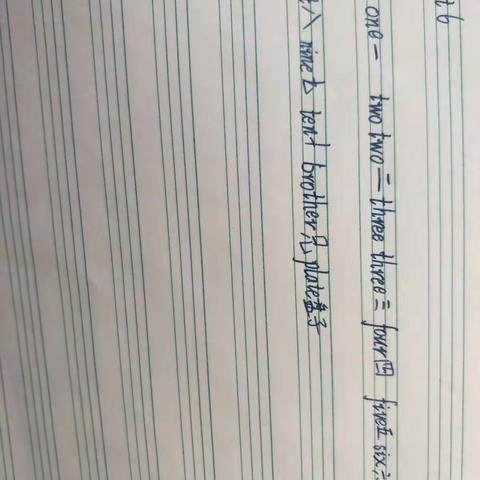 one一 two two二 three three三 four四 five五 six
八 nine九 ten十 brother兄 plate盘子